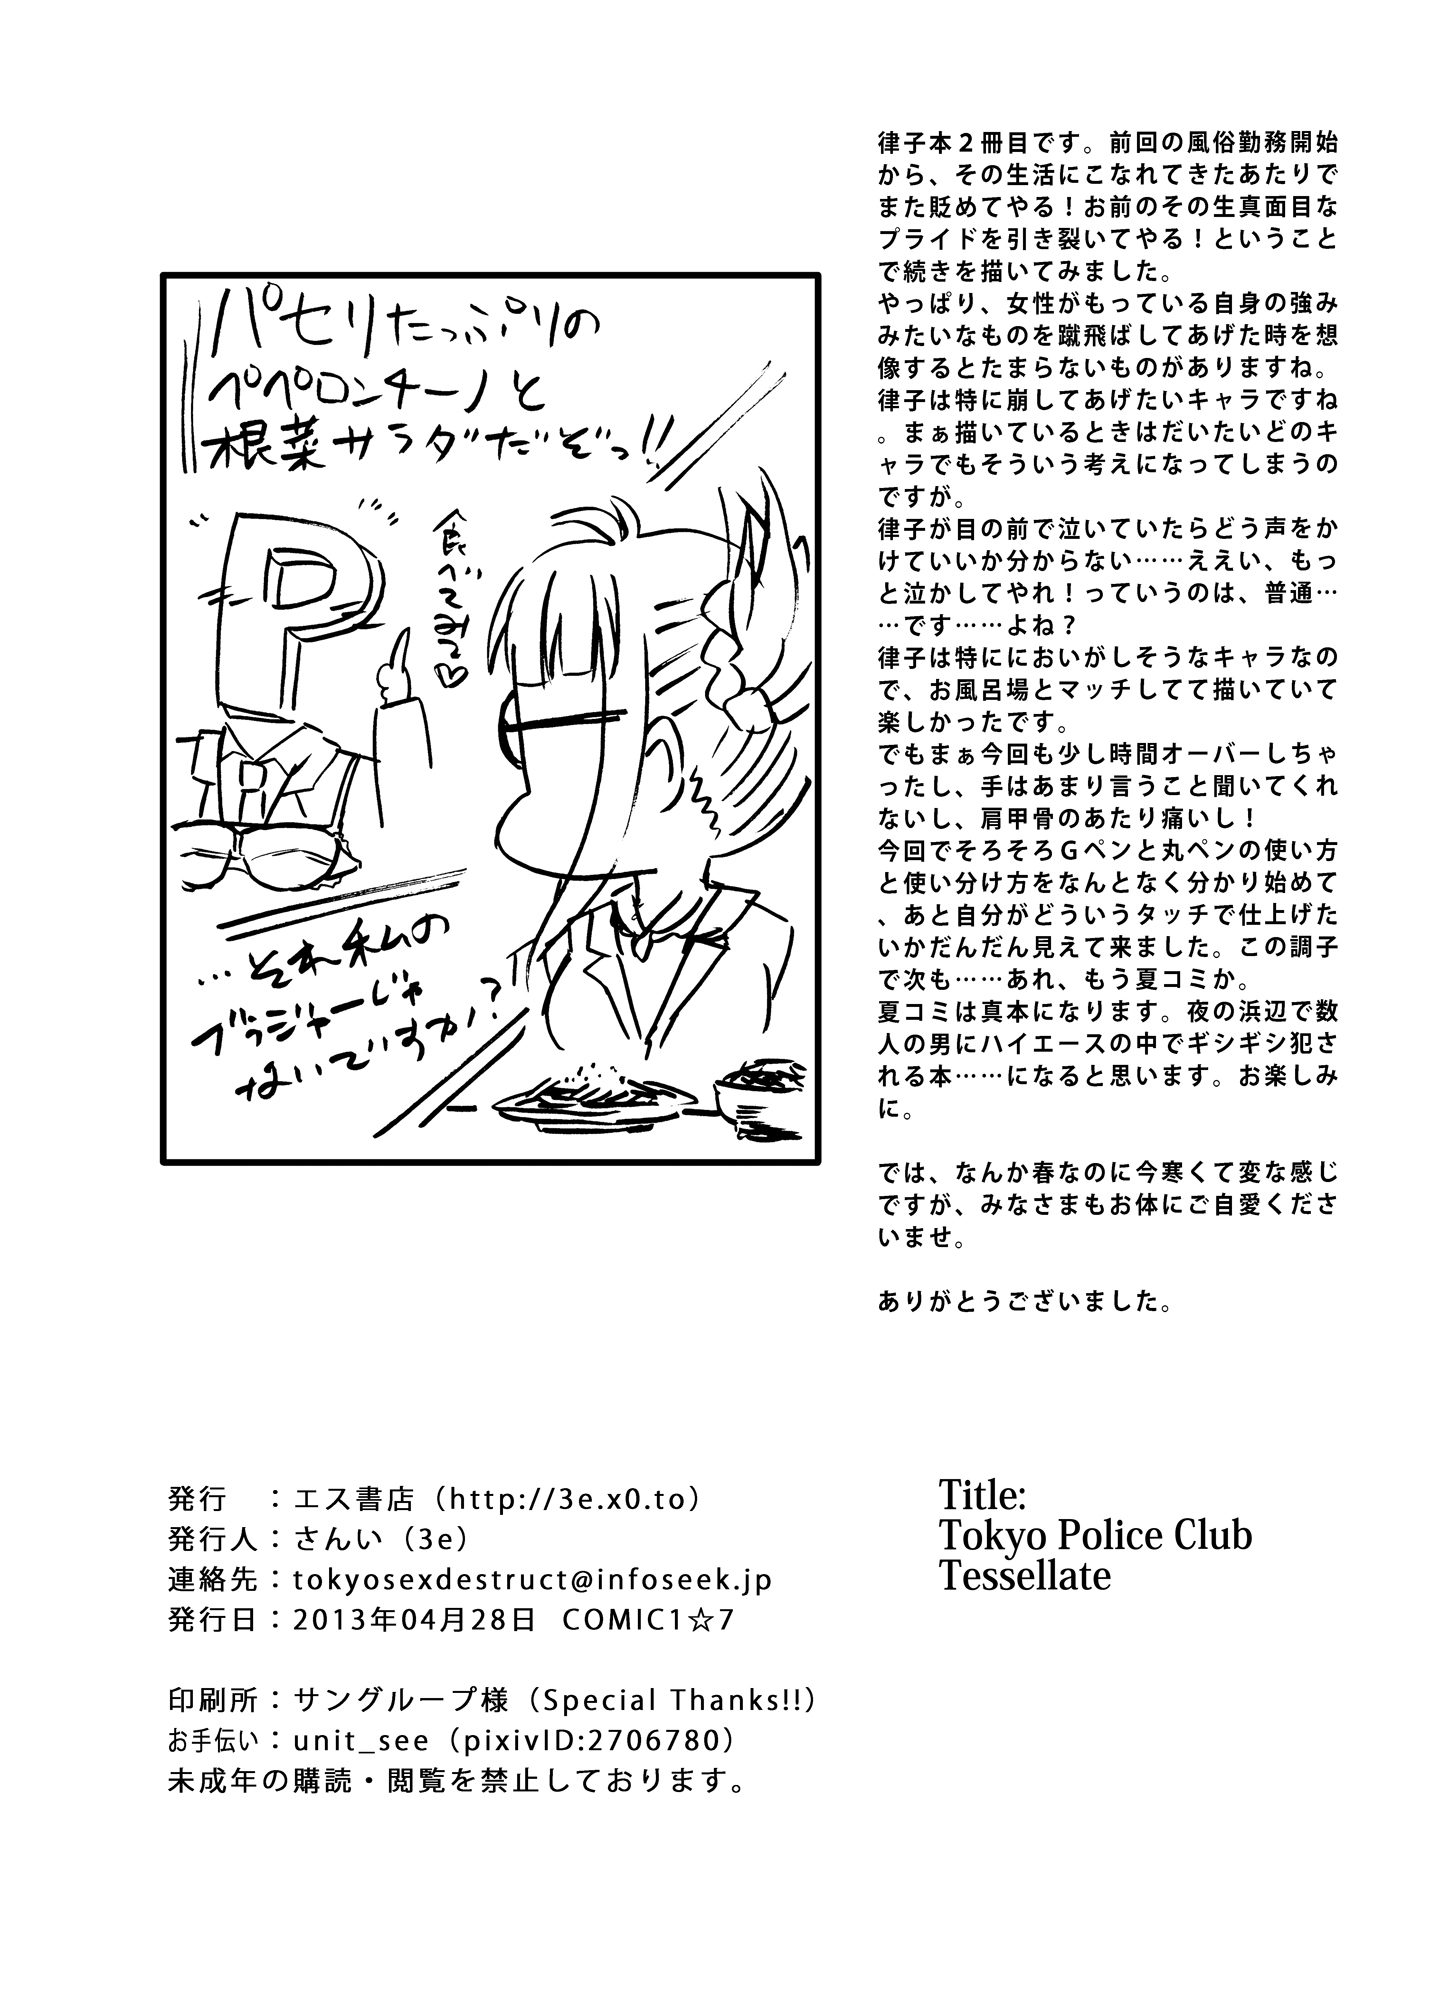 律子本２冊目です。前回の風俗勤務開始
から、その生活にこなれてきたあたりで
また貶めてやる！お前のその生真面目な
プライドを引き裂いてやる！ということ
で続きを描いてみました。
やっぱり、女性がもっている自身の強み
みたいなものを蹴飛ばしてあげた時を想
像するとたまらないものがありますね。
律子は特に崩してあげたいキャラですね
。まぁ描いているときはだいたいどのキ
ャラでもそういう考えになってしまうの
ですが。
律子が目の前で泣いていたらどう声をか
けていいか分からない……ええい、もっ
と泣かしてやれ！っていうのは、普通…
…です……よね？
律子は特ににおいがしそうなキャラなの
で、お風呂場とマッチしてて描いていて
楽しかったです。
でもまぁ今回も少し時間オーバーしちゃ
ったし、手はあまり言うこと聞いてくれ
ないし、肩甲骨のあたり痛いし！
今回でそろそろＧペンと丸ペンの使い方
と使い分け方をなんとなく分かり始めて
、あと自分がどういうタッチで仕上げた
いかだんだん見えて来ました。この調子
で次も……あれ、もう夏コミか。
夏コミは真本になります。夜の浜辺で数
人の男にハイエースの中でギシギシ犯さ
れる本……になると思います。お楽しみ
に。
では、なんか春なのに今寒くて変な感じ
ですが、みなさまもお体にご自愛くださ
いませ。
ありがとうございました。
パセリたっぷりの
ペペロンチーノと
根菜サラダだぞっ!!
食べてみて♡
P
P
…それ私の
ブラジャーじゃ
ないですか！？
発行　：エス書店（http://3e.x0.to）
発行人：さんい（3e）
連絡先：tokyosexdestruct@infoseek.jp
発行日：2013年04月28日　COMIC1☆7
印刷所：サングループ様（Special Thanks!!）
お手伝い：unit_see（pixivID:2706780）
未成年の購読・閲覧を禁止しております。
Title:
Tokyo Police Club
Tessellate